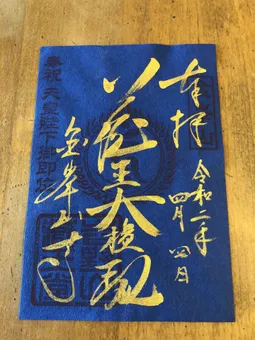 奉拝
令和二年
四月四日
蔵王大権現
金峯山寺
奉祝 天皇陛下 御即位